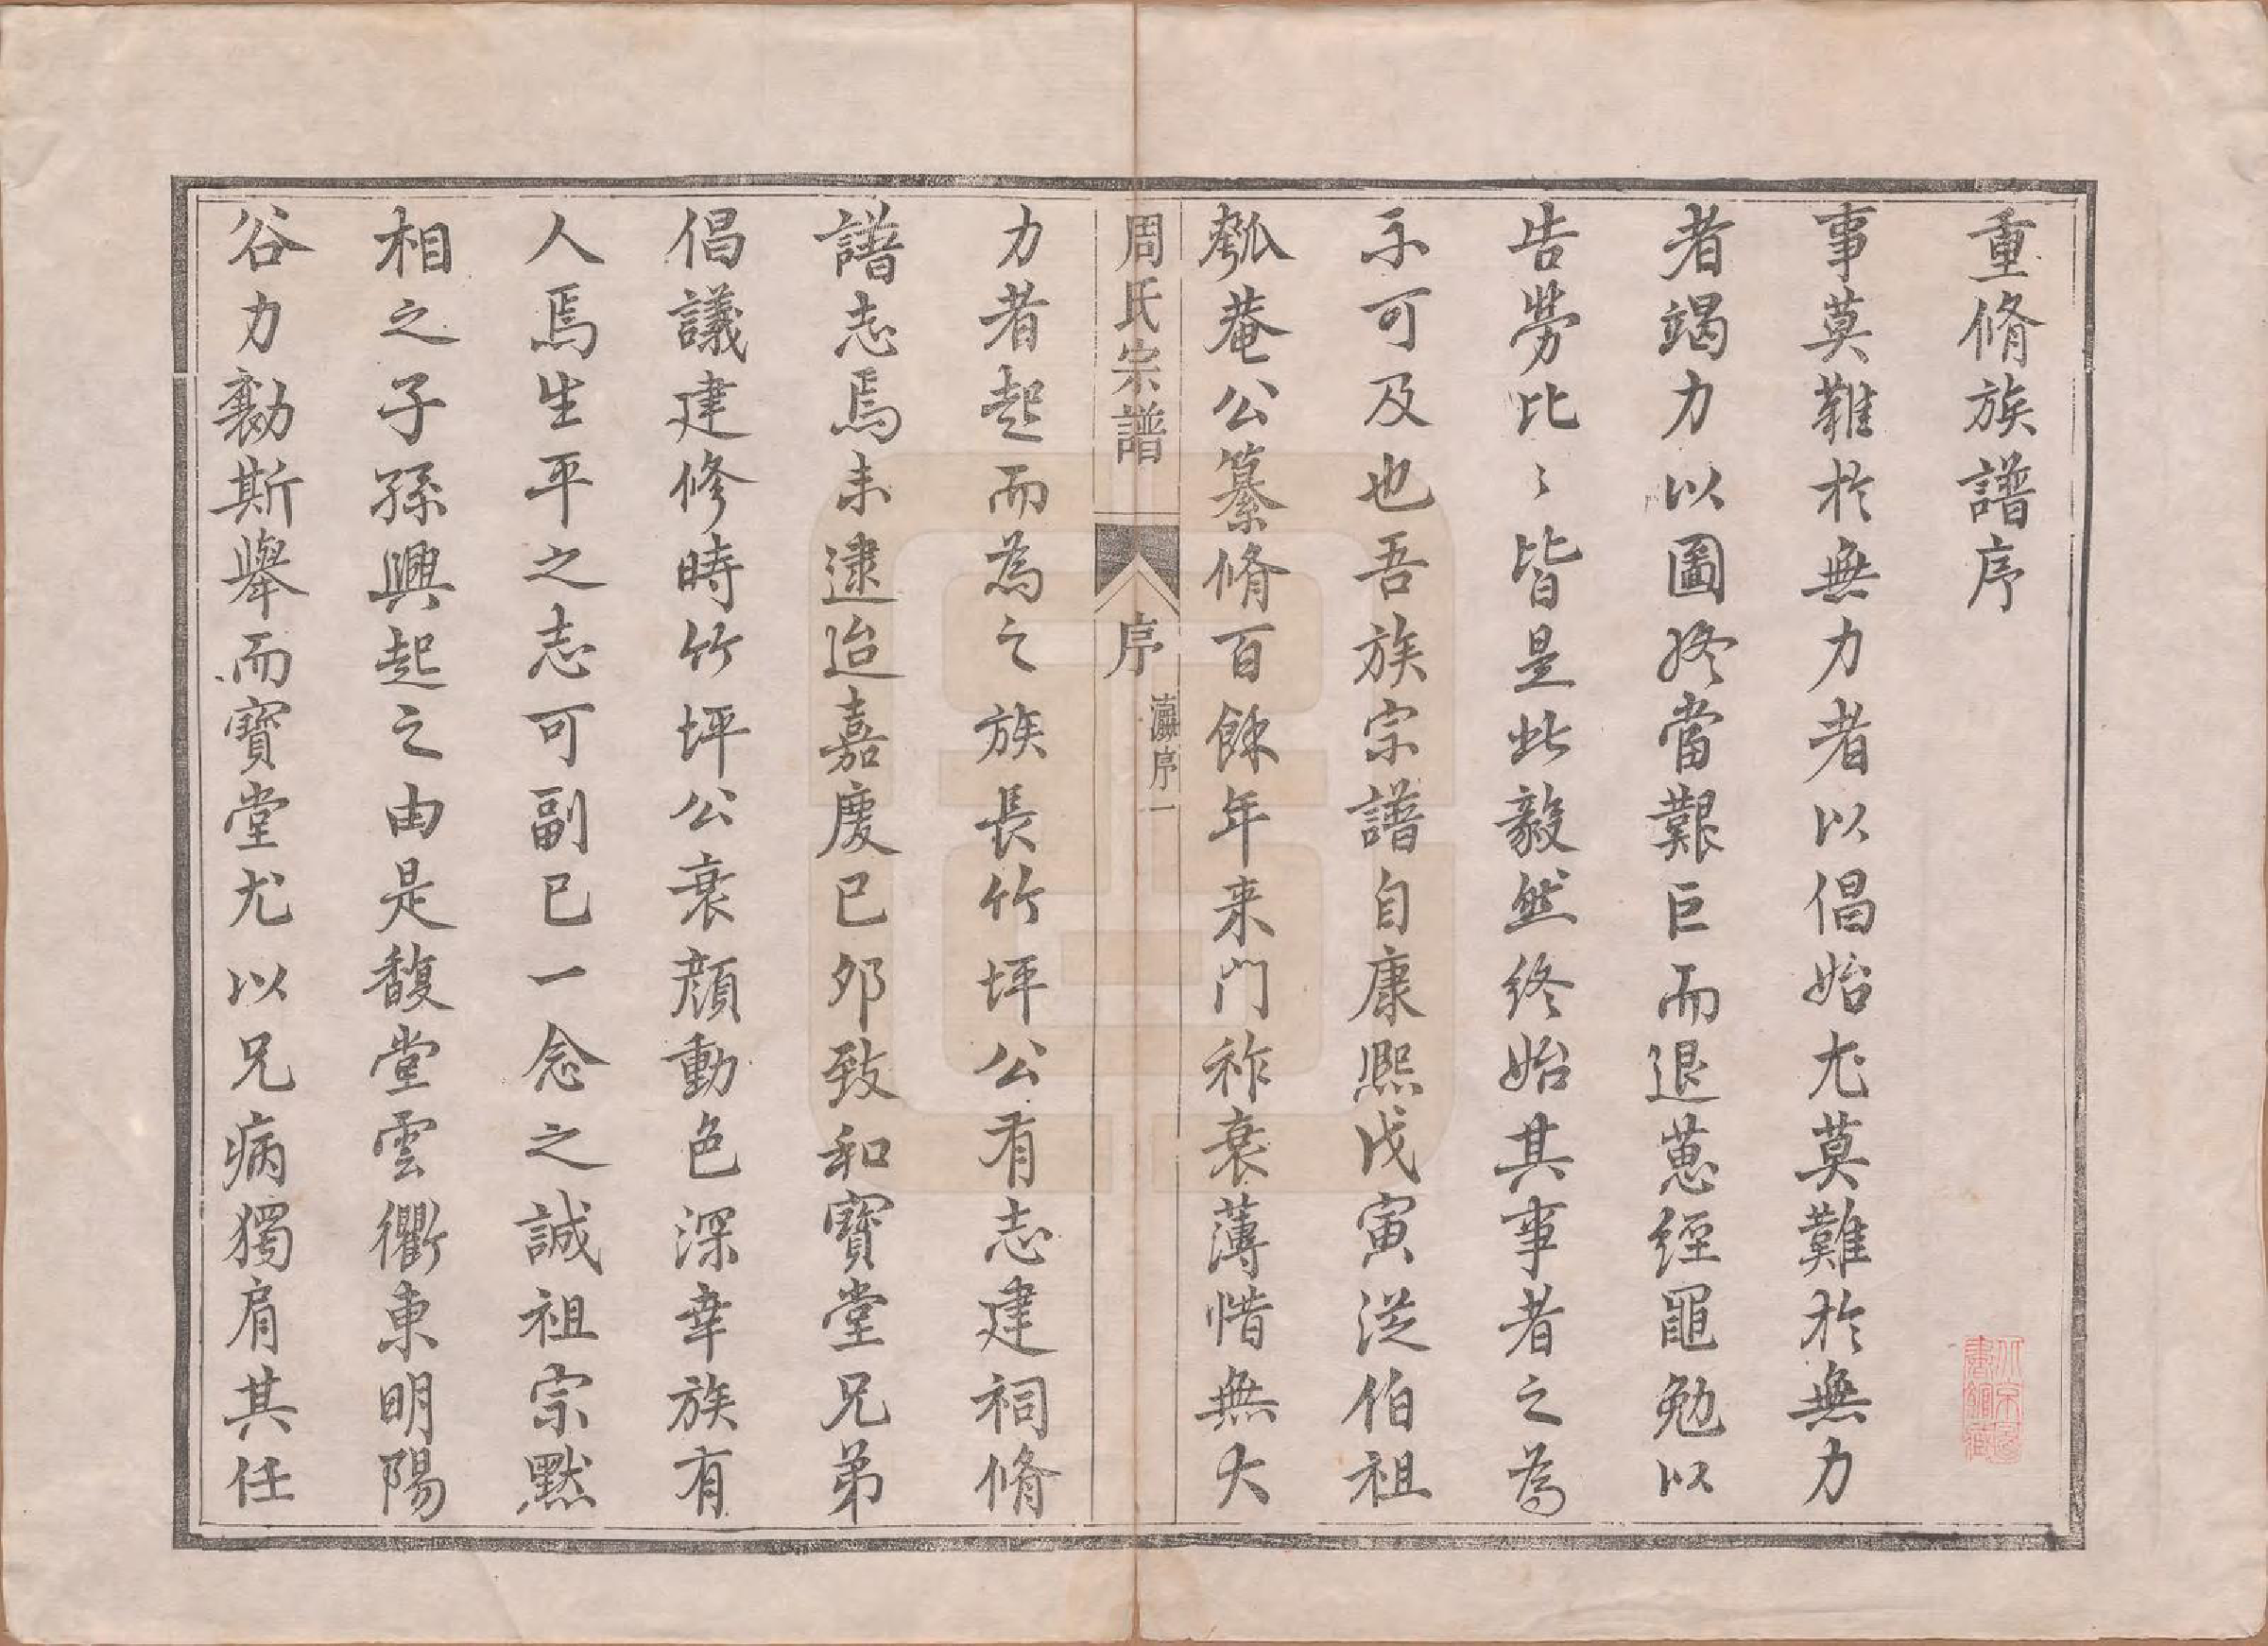 重脩族譜序
事莫難於無力者以倡始尤莫難於無力
者竭力以圖終當艱巨而退葸經黽勉以
告勞比〻皆是此毅然終始其事者之為
不可及也吾族宗譜自康熙戊寅從伯祖
瓠菴公纂脩百餘年来门祚衰薄惜無大
周氏宗譜
序
瀛序一
力者起而為之族長竹坪公有志建祠脩
譜志焉未逮迨嘉慶已夘致和寶堂兄弟
倡議建修時竹坪公衰顔動色深幸族有
人焉生平之志可副已一念之誠祖宗黙
相之子孫興起之由是馥堂雲衢東明陽
谷力勷斯舉而寶堂尤以兄病獨肩其任